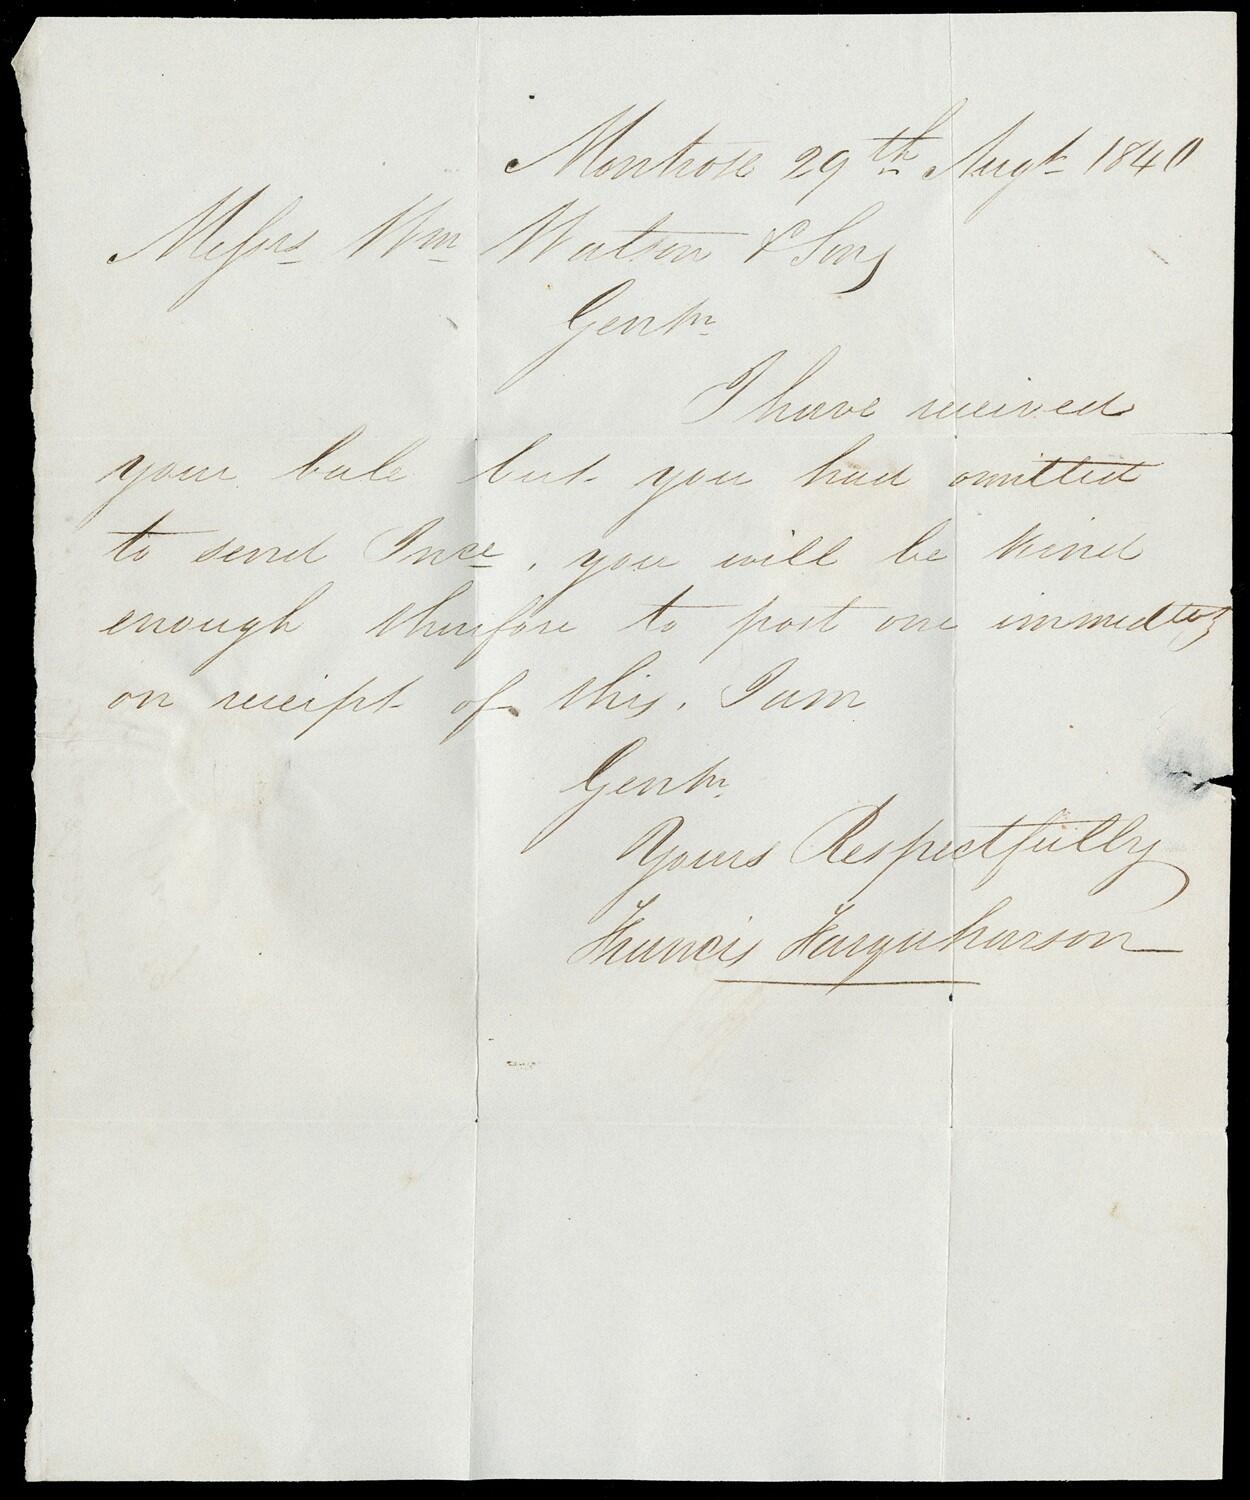 Montrose 29th Augt 1840
Messrs Wm Watson & Sons
Gentn
I have received
your bale but you had omitted
to send Invce, you will be kind
enough therefore to post one immedtely
on receipt of this. I am
Gentn
Yours Respectfully
Francis Farquharson